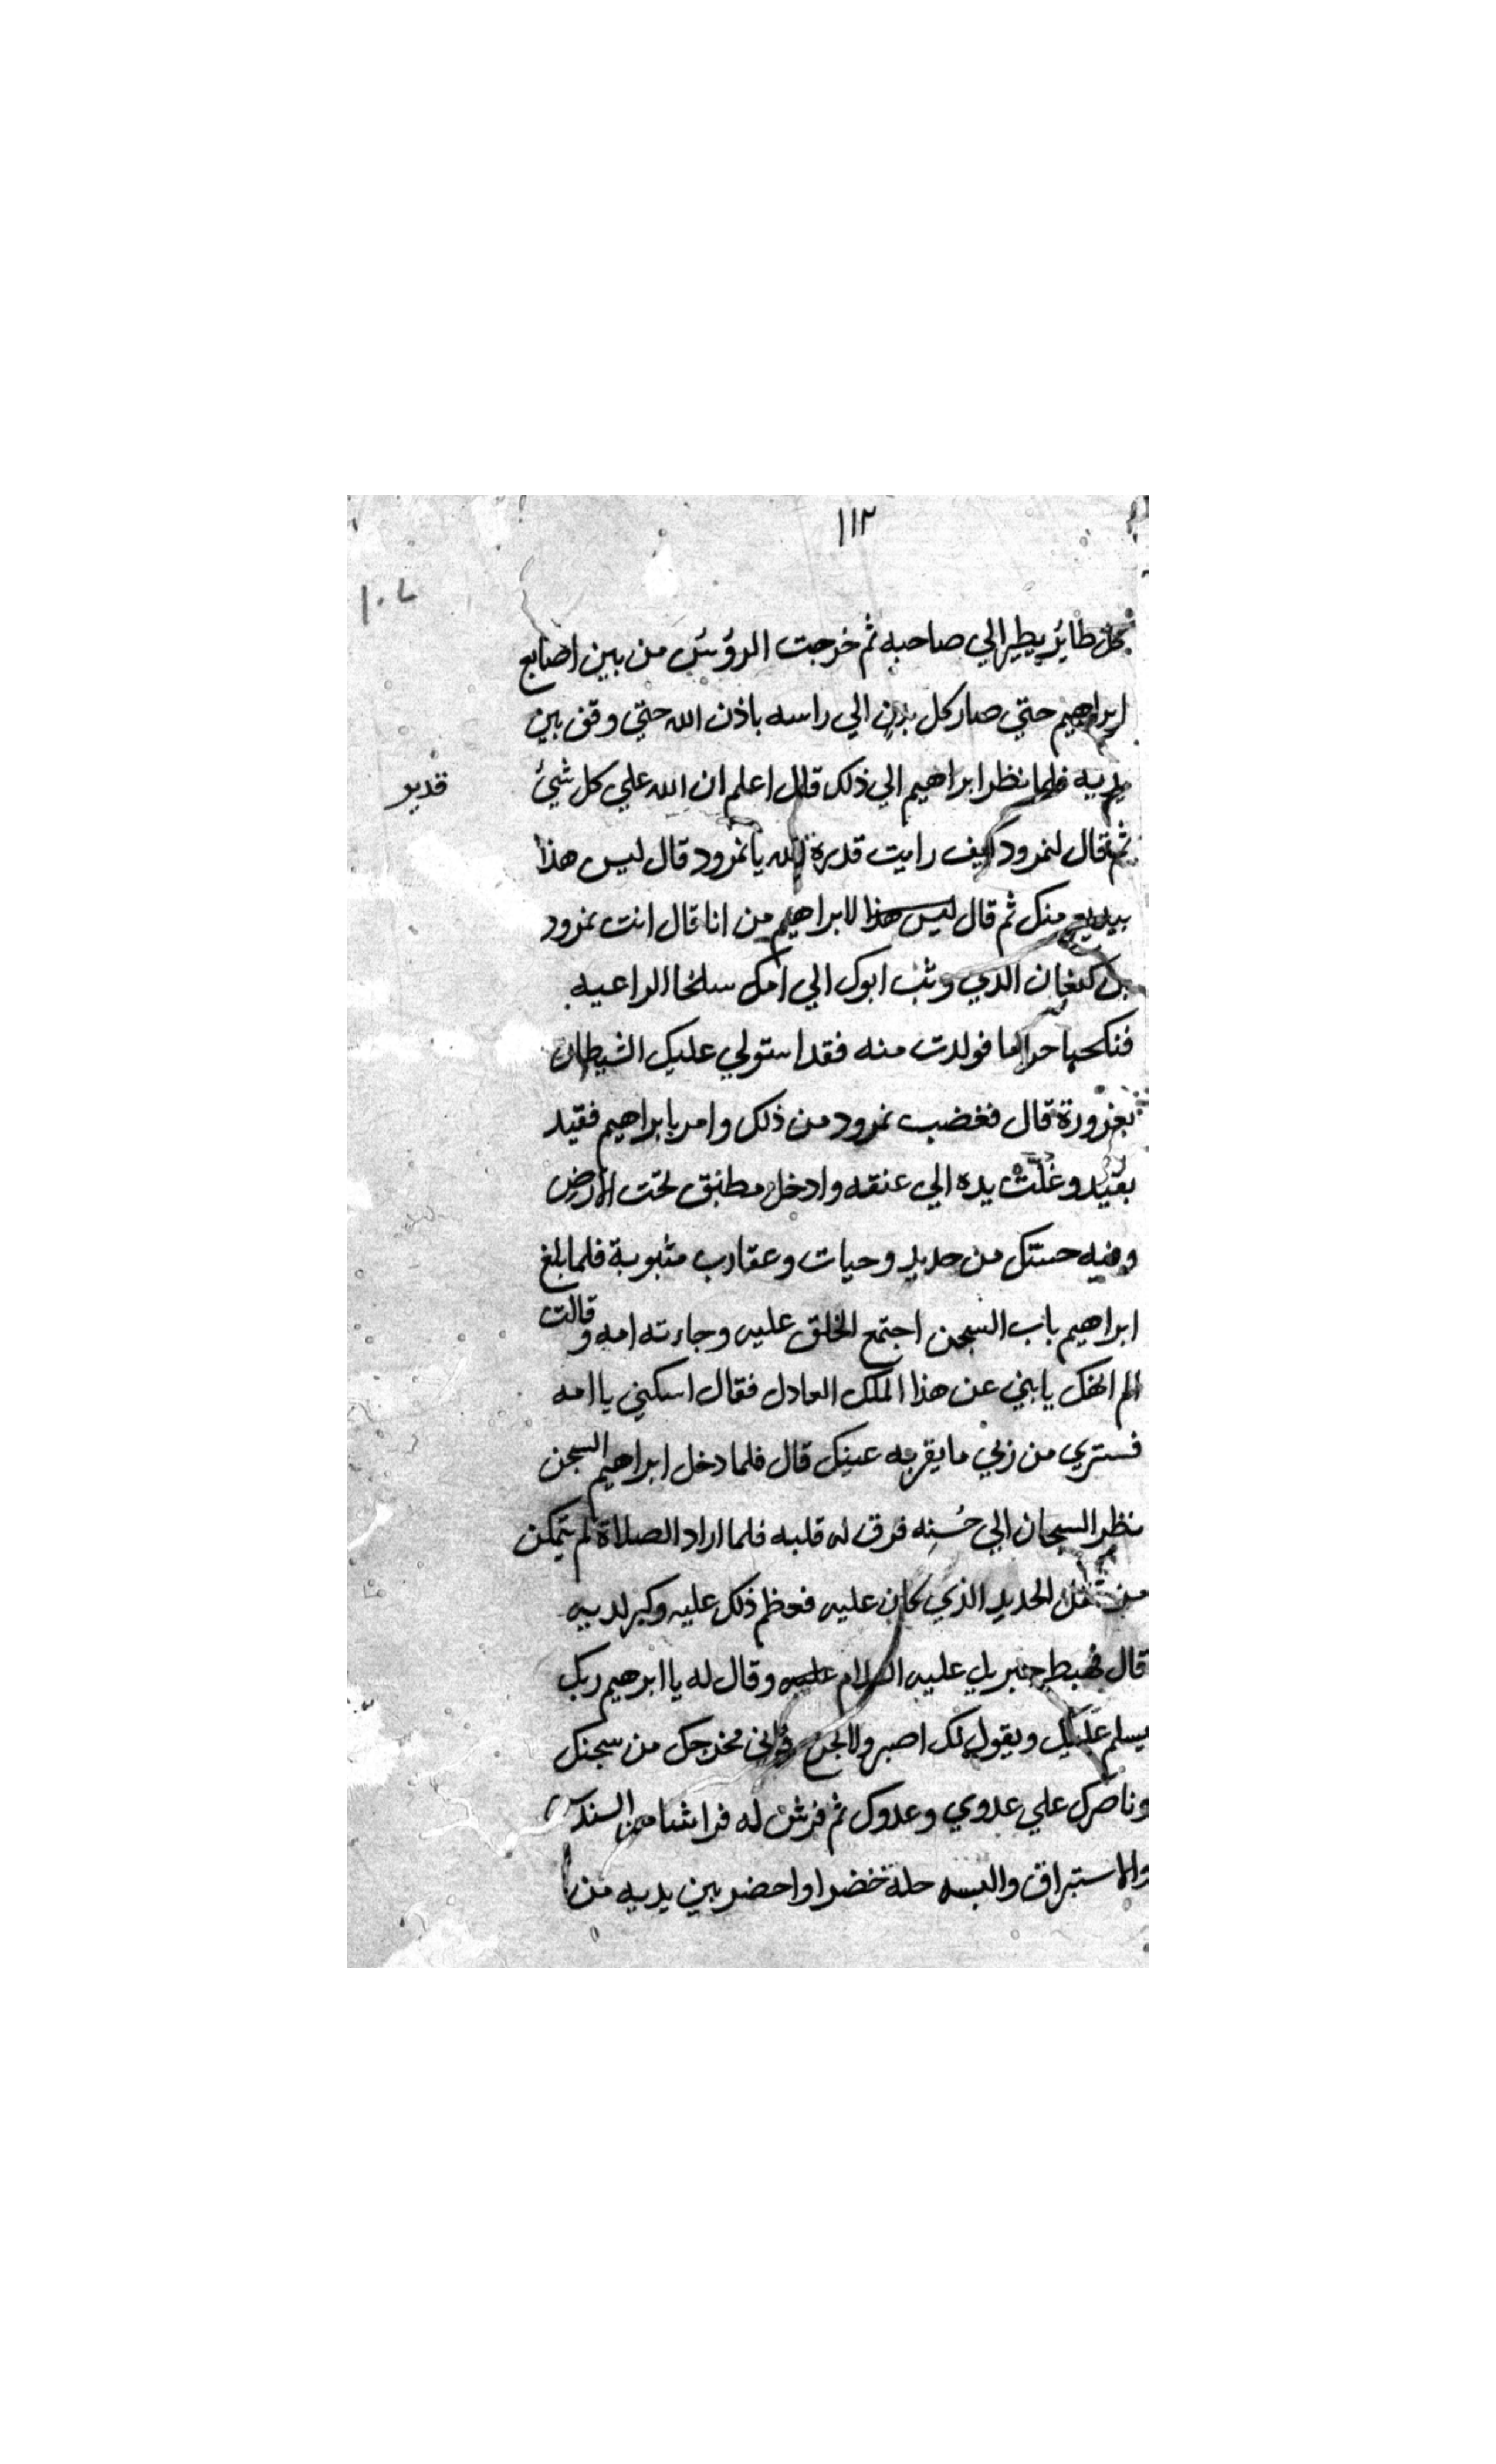 ١١٢
١٠٧
كل طاير يطير الي صاحبه ثم خرجت الرؤس من بين اصابع
ابراهيم حتي صار كل بدن الي راسه باذن الله حتي وقف بين
يديه فلما نظر ابراهيم الي ذلك قال اعلم ان الله علي كل شيئ
قدير
ثم قال لنمرود كيف رايت قدرة الله يا نمرود قال ليس هذا
ببديع منك ثم قال ليس هذا لابراهيم من انا قال انت نمرود
بن كنعان الذي وثب ابوك الي امك سلخا الراعيه
فنكحها حراما فولدت منه فقد استولي عليك الشيطان
بغروره قال فغضب نمرود من ذلك وامر بابراهيم فقيد
بقيد وغلّت يده الي عنقه وادخل مطبق تحت الارض
وفيه حسك من حديد وحيات وعقارب مثبوبة فلما بلغ
ابراهيم باب السجن اجتمع الخلق عليه وجاءته امه وقالت
الم انهك يا بني عن هذا الملك العادل فقال اسكني يا امه
فستري من ربي ما يقر به عينك قال فلما دخل ابراهيم السجن
نظر السجان الي حُسنه فرق له قلبه فلما اراد الصلاة لم يتمكن
من ثقل الحديد الذي كان عليه فعظم ذلك عليه وكبر لديه
قال فهبط جبريل عليه السلام عليه وقال له يا ابرهيم ربك
يسلم عليك ويقول لك اصبر ولا فاني مخرجك من سجنك
وناصرك علي عدوي وعدوك ثم فرش له فراشا من السندس
والاستبراق والبسه حلة خضرا واحضر بين يديه من